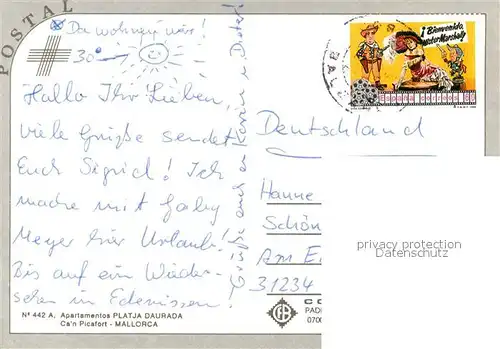 POSTAL
Da wohnen wir!
30°
Hallo Ihr Lieben,
viele Grüße sendet
Euch Sigrid! Ich
mache mit Gaby
Meyer hier Urlaub!
Bis auf ein Wieder-
sehen in Edemissen!
Grüße auch an Karin u. Dieter!
Nº 442 A. Apartamentos PLATJA DAURADA
Ca'n Picafort - MALLORCA
¡Bienvenido
míster Marshall!
ESPAÑA
Deutschland
Hanne
Schön
Am E
31234
privacy protection
Datenschutz
CO
PADI
0700